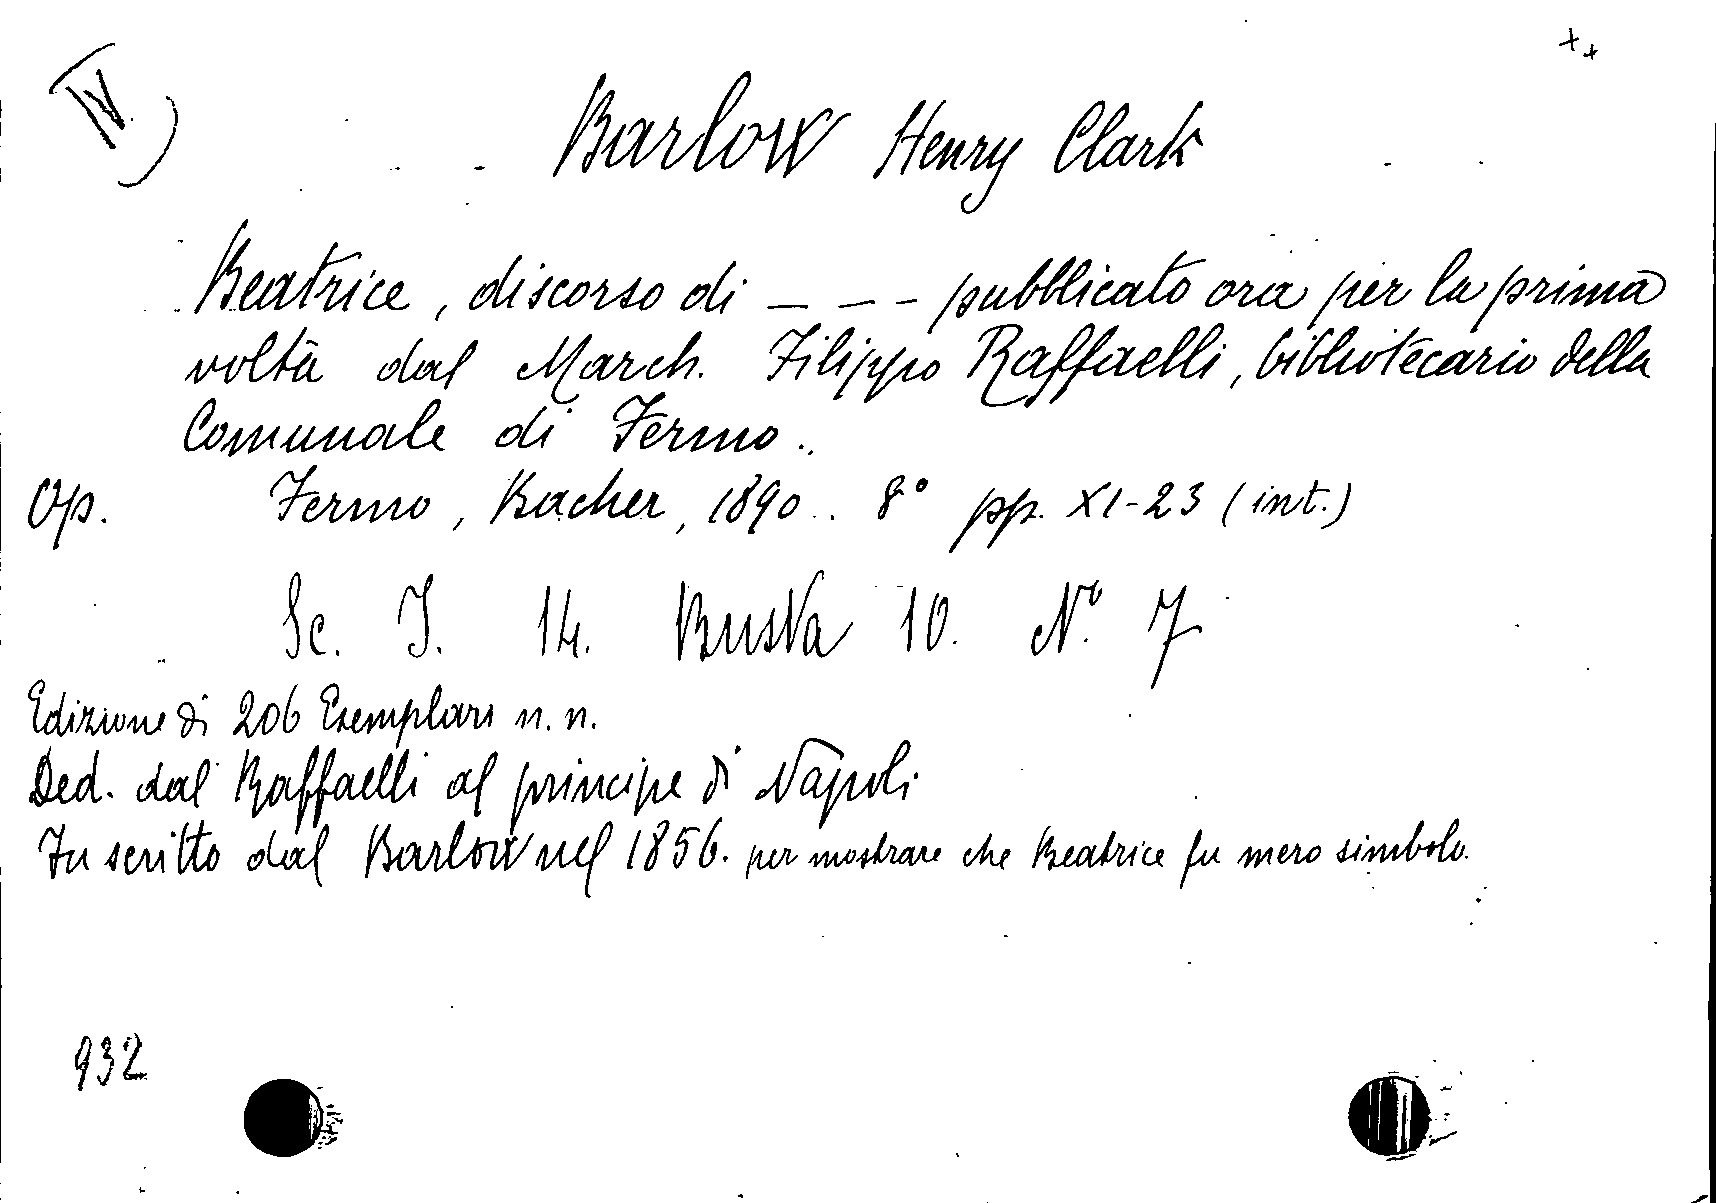 IV)
Barlow Henry Clark
Beatrice, discorso di - - - pubblicato ora per la prima
volta dal March. Filippo Raffaelli, bibliotecario della
Comunale di Fermo.
Op. Fermo, Bacher, 1890. 8° pp. XI-23 (int.)
Sc. I. 14. Busta 10. N.° 7
Edizione di 206 Esemplari n. n.
Ded. dal Raffaelli al principe di Napoli
Fu scritto dal Barlow nel 1856. per mostrare che Beatrice fu mero simbolo.
932